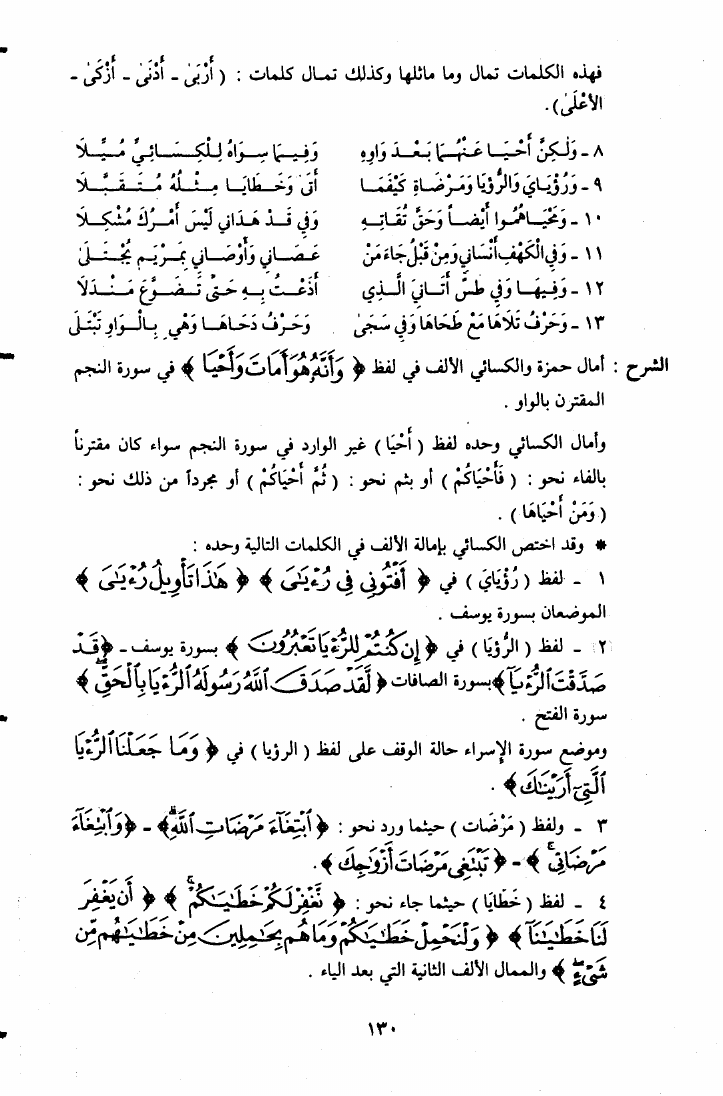 فهذه الكلمات تمال وما ماثلها وكذلك تمال كلمات : ( أَرْبَىٰ - أَدْنَىٰ - أَزْكَىٰ -
الأَعْلَىٰ).
٨ - وَلٰكِنَّ أَحْيَا عَنْهُمَا بَعْدَ وَاوِهِ وَفِيمَا سِوَاهُ لِلْكِسَائِيِّ مُيِّلَا
٩ - وَرُؤْيَايَ وَالرُّؤْيَا وَمَرْضَاةِ كَيْفَمَا أَتَىٰ وَخَطَايَا مِثْلُهُ مُتَقَبَّلَا
١٠ - وَمَحْيَاهُمُوا أَيْضاً وَحَقَّ تُقَاتِهِ وَفِي قَدْ هَدَانِي لَيْسَ أَمْرُكَ مُشْكِلَا
١١ - وَفِي الْكَهْفِ أَنْسَانِي وَمِنْ قَبْلُ جَاءَ مَنْ عَصَانِي وَأَوْصَانِي بِمَرْيَمَ يُجْتَلَىٰ
١٢ - وَفِيهَا وَفِي طسَ آتَانِيَ الَّذِي أَذَعْتُ بِهِ حَتَّىٰ تَضَوَّعَ مَنْدَلَا
١٣ - وَحَرْفُ تَلَاهَا مَعْ طَحَاهَا وَفِي سَجَىٰ وَحَرْفُ دَحَاهَا وَهْيَ بِالْوَاوِ تُبْتَلَىٰ
الشرح : أمال حمزة والكسائي الألف في لفظ ﴿ وَأَنَّهُ هُوَ أَمَاتَ وَأَحْيَا ﴾ في سورة النجم
المقترن بالواو .
وأمال الكسائي وحده لفظ ( أَحْيَا ) غير الوارد في سورة النجم سواء كان مقترناً
بالفاء نحو : ( فَأَحْيَاكُمْ ) أو بثم نحو : ( ثُمَّ أَحْيَاكُمْ ) أو مجرداً من ذلك نحو :
( وَمَنْ أَحْيَاهَا ) .
* وقد اختص الكسائي بإمالة الألف في الكلمات التالية وحده :
١ - لفظ ( رُؤْيَايَ ) في ﴿ أَفْتُونِي فِي رُءْيَـٰيَ ﴾ ﴿ هَـٰذَا تَأْوِيلُ رُءْيَـٰيَ ﴾
الموضعان بسورة يوسف .
٢ - لفظ ( الرُّؤْيَا ) في ﴿ إِن كُنتُمْ لِلرُّءْيَا تَعْبُرُونَ ﴾ بسورة يوسف - ﴿ قَدْ
صَدَّقْتَ ٱلرُّءْيَآ ﴾ بسورة الصافات ﴿ لَّقَدْ صَدَقَ ٱللَّهُ رَسُولَهُ ٱلرُّءْيَا بِٱلْحَقِّ ۖ ﴾
سورة الفتح .
وموضع سورة الإسراء حالة الوقف على لفظ ( الرؤيا ) في ﴿ وَمَا جَعَلْنَا ٱلرُّءْيَا
ٱلَّتِيٓ أَرَيْنَـٰكَ ﴾ .
٣ - ولفظ ( مَرْضَات ) حيثما ورد نحو : ﴿ ٱبْتِغَآءَ مَرْضَاتِ ٱللَّهِ ۗ ﴾ - ﴿ وَٱبْتِغَآءَ
مَرْضَاتِي ۚ ﴾ - ﴿ تَبْتَغِي مَرْضَاتَ أَزْوَٰجِكَ ﴾ .
٤ - لفظ ( خَطَايَا ) حيثما جاء نحو : ﴿ نَّغْفِرْ لَكُمْ خَطَـٰيَـٰكُمْ ۚ ﴾ ﴿ أَن يَغْفِرَ
لَنَا خَطَـٰيَـٰنَآ ﴾ ﴿ وَلْنَحْمِلْ خَطَـٰيَـٰكُمْ وَمَا هُم بِحَـٰمِلِينَ مِنْ خَطَـٰيَـٰهُم مِّن
شَيْءٍ ۖ ﴾ والممال الألف الثانية التي بعد الياء .
١٣٠